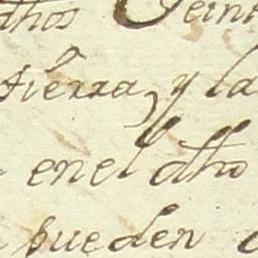 dhos Seint
tierra, y la
en el dho
pueden